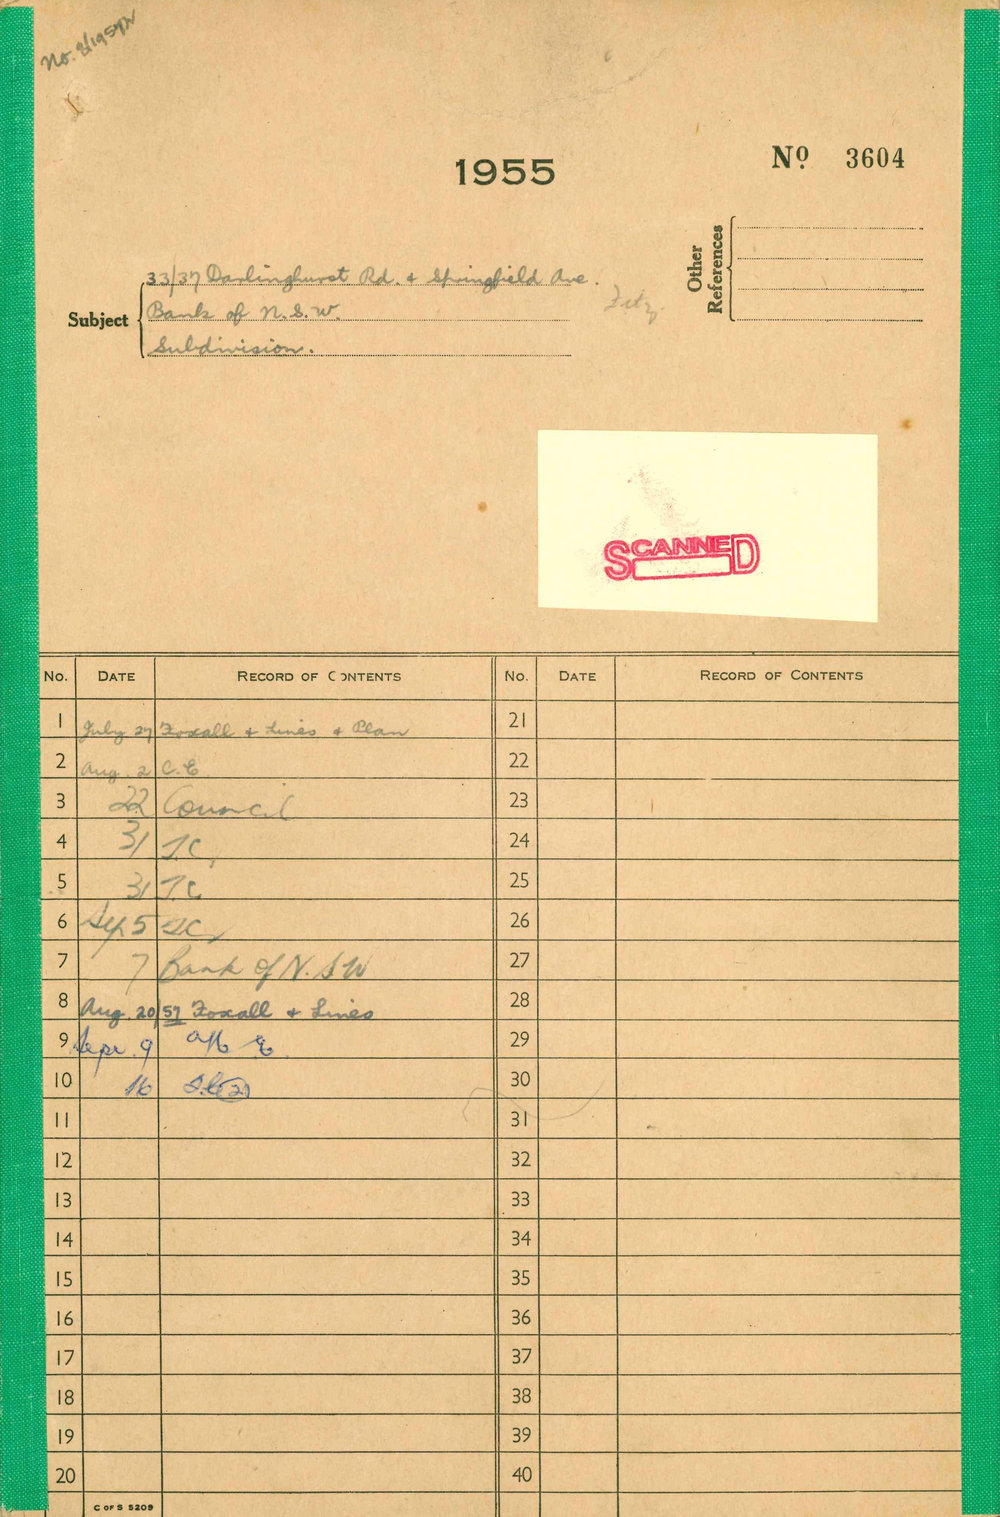 No. 8/1957N
1955
No 3604
Other References
Subject
33/37 Darlinghurst Rd. & Springfield Ave.
Bank of N.S.W.
Subdivision.
Fitz
SCANNED
No. DATE RECORD OF CONTENTS No. DATE RECORD OF CONTENTS
1 July 27 Foxall & Lines & Plan 21
2 Aug. 2 C.E. 22
3 22 Council 23
4 31 T.C. 24
5 31 T.C 25
6 Sep 5 T.C. 26
7 7 Bank of N.S.W 27
8 Aug. 20/57 Foxall & Lines 28
9 Sepr. 9 E. 29
10 16 30
11 31
12 32
13 33
14 34
15 35
16 36
17 37
18 38
19 39
20 40
C OF S 5209